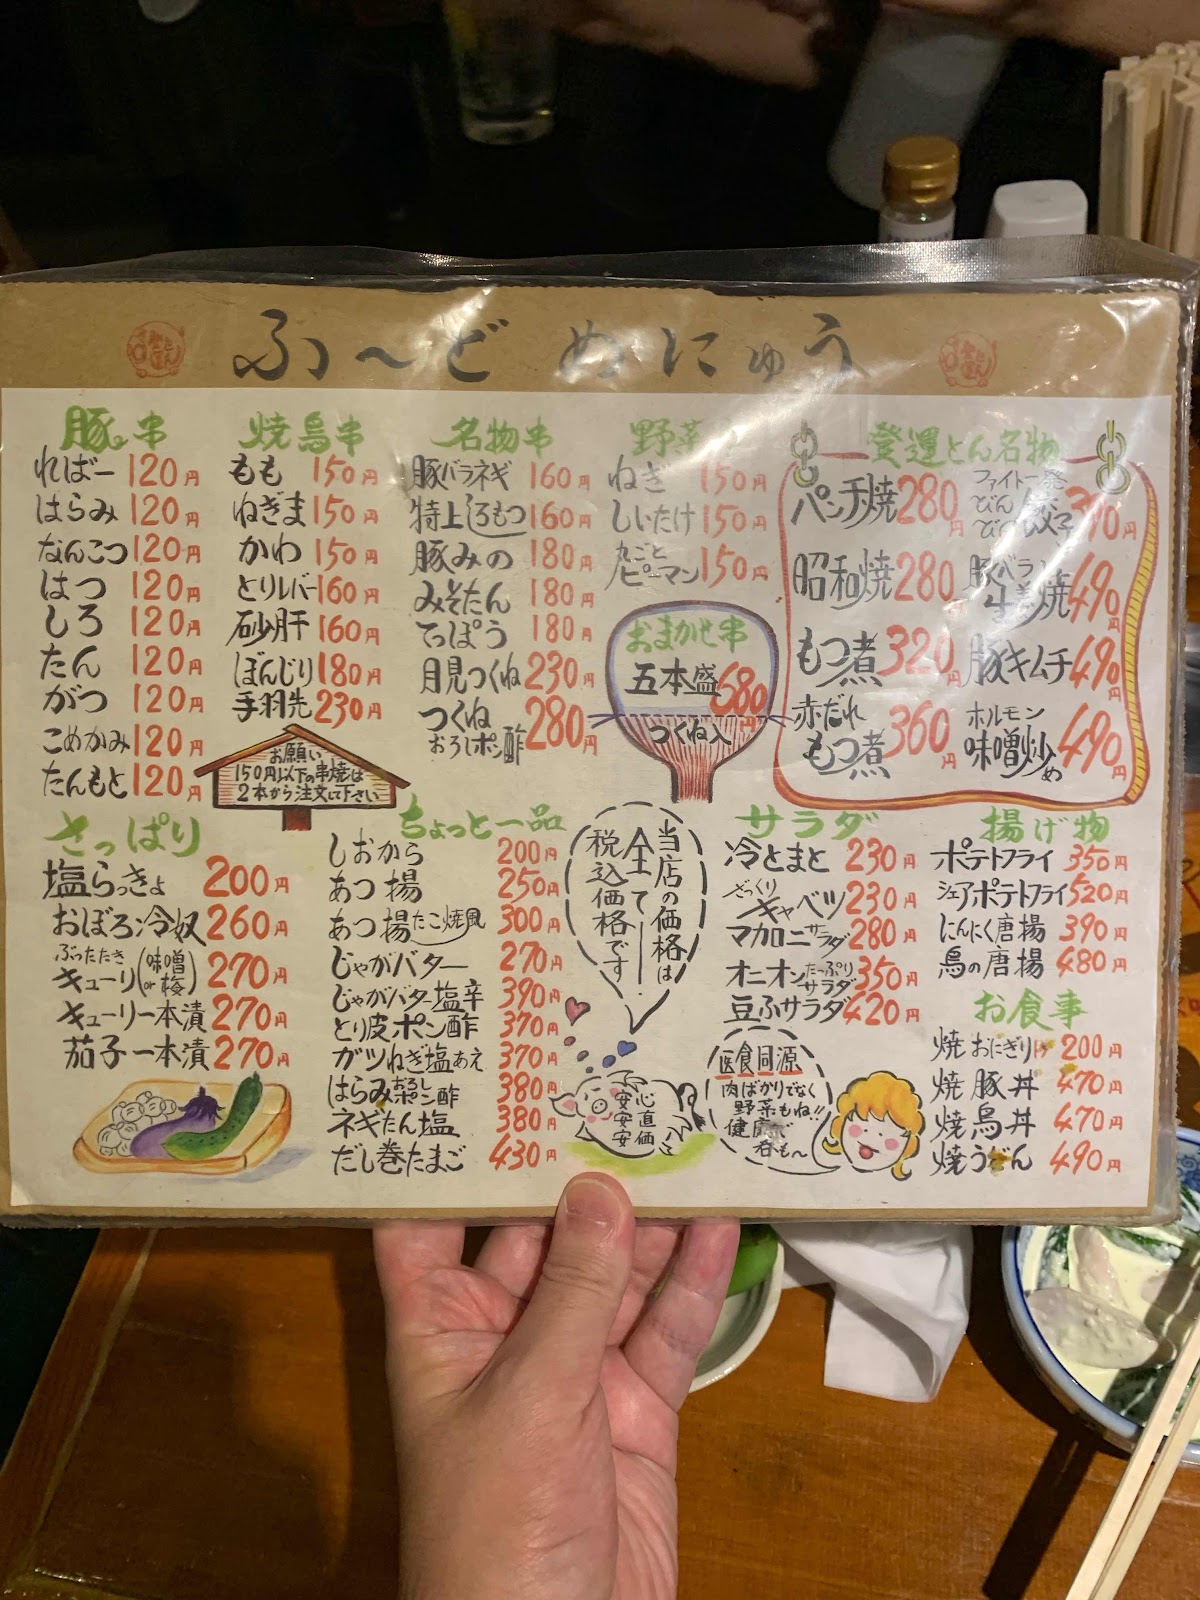 ふ〜ど めにゅう
豚串
ればー 120円
はらみ 120円
なんこつ 120円
はつ 120円
しろ 120円
たん 120円
がつ 120円
こめかみ 120円
たんもと 120円
焼鳥串
もも 150円
ねぎま 150円
かわ 150円
とりレバー 160円
砂肝 160円
ぼんじり 180円
手羽先 230円
お願い
150円以下の串焼は
2本から注文して下さい
名物串
豚バラネギ 160円
特上しろもつ 160円
豚みの 180円
みそたん 180円
てっぽう 180円
月見つくね 230円
つくね
おろしポン酢 280円
野菜
ねぎ 150円
しいたけ 150円
丸ごと
ピーマン 150円
おまかせ串
五本盛 680円
つくね入
登運とん名物
パンチ焼 280円
昭和焼 280円
もつ煮 320円
赤だれ
もつ煮 360円
ファイト一発
びんびん餃子 390円
豚バラ
生姜焼 490円
豚キムチ 490円
ホルモン
味噌炒め 490円
さっぱり
塩らっきょ 200円
おぼろ冷奴 260円
ぶったたき
キューリ(味噌or梅) 270円
キューリ一本漬 270円
茄子一本漬 270円
ちょっと一品
しおから 200円
あつ揚 250円
あつ揚たこ焼風 300円
じゃがバター 270円
じゃがバター塩辛 390円
とり皮ポン酢 370円
ガツねぎ塩あえ 370円
はらみおろしポン酢 380円
ネギたん塩 380円
だし巻たまご 430円
当店の価格は
全て
税込価格です
安心
安直
安価
サラダ
冷とまと 230円
ざっくり
キャベツ 230円
マカロニサラダ 280円
オニオンたっぷりサラダ 350円
豆ふサラダ 420円
医食同源
肉ばかりでなく
野菜もね!!
健康で
呑も〜
揚げ物
ポテトフライ 350円
シェアポテトフライ 520円
にんにく唐揚 390円
鳥の唐揚 480円
お食事
焼おにぎり 200円
焼豚丼 470円
焼鳥丼 470円
焼うどん 490円